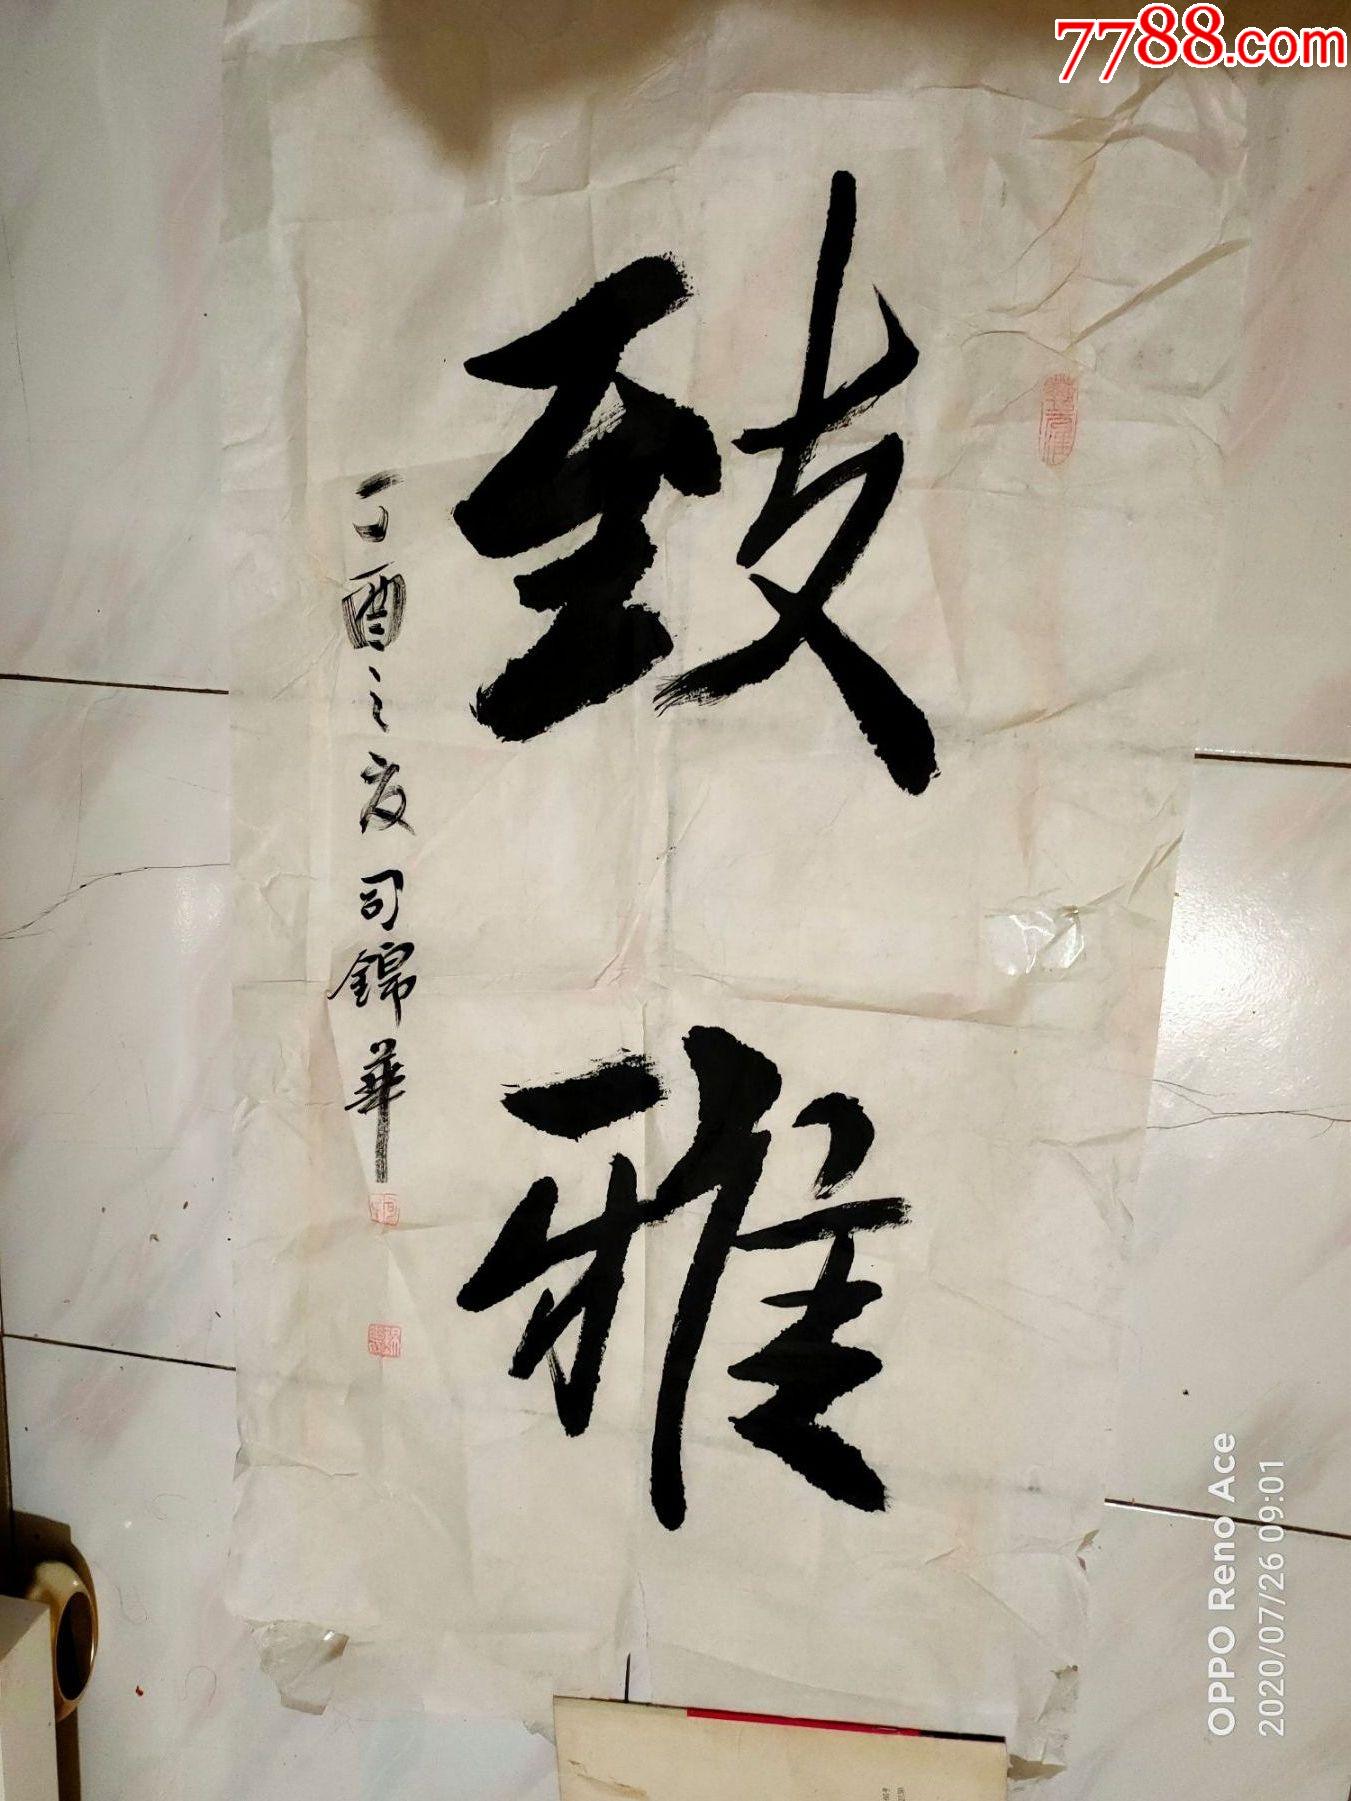 7788.com
致雅
丁酉之夏司锦華
OPPO Reno Ace
2020/07/26 09:01